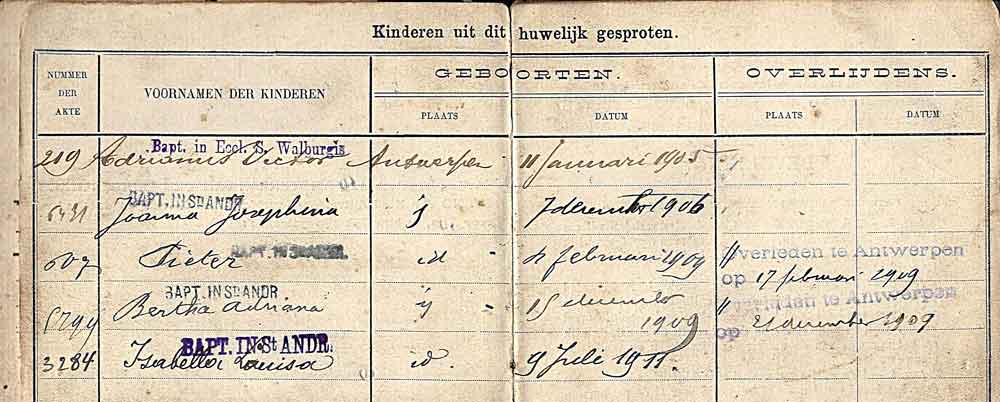 Kinderen uit dit huwelijk gesproten.
NUMMER DER AKTE
VOORNAMEN DER KINDEREN
GEBOORTEN.
OVERLIJDENS.
PLAATS
DATUM
PLAATS
DATUM
Bapt. in Eccl. S. Walburgis
219 Adrianus Victor Antwerpen 11 Januari 1905
BAPT. IN St ANDR
Joanna Josephina ij 7 december 1906
BAPT. IN St ANDR.
607 Pieter id 4 februari 1909 " Overleden te Antwerpen
op 17 februari 1909
BAPT. IN St ANDR
5799 Bertha Adriana ij 15 december 1909 " Overleden te Antwerpen
op 21 december 1909
BAPT. IN St ANDR.
3284 Isabella Louisa id. 9 Juli 1911.